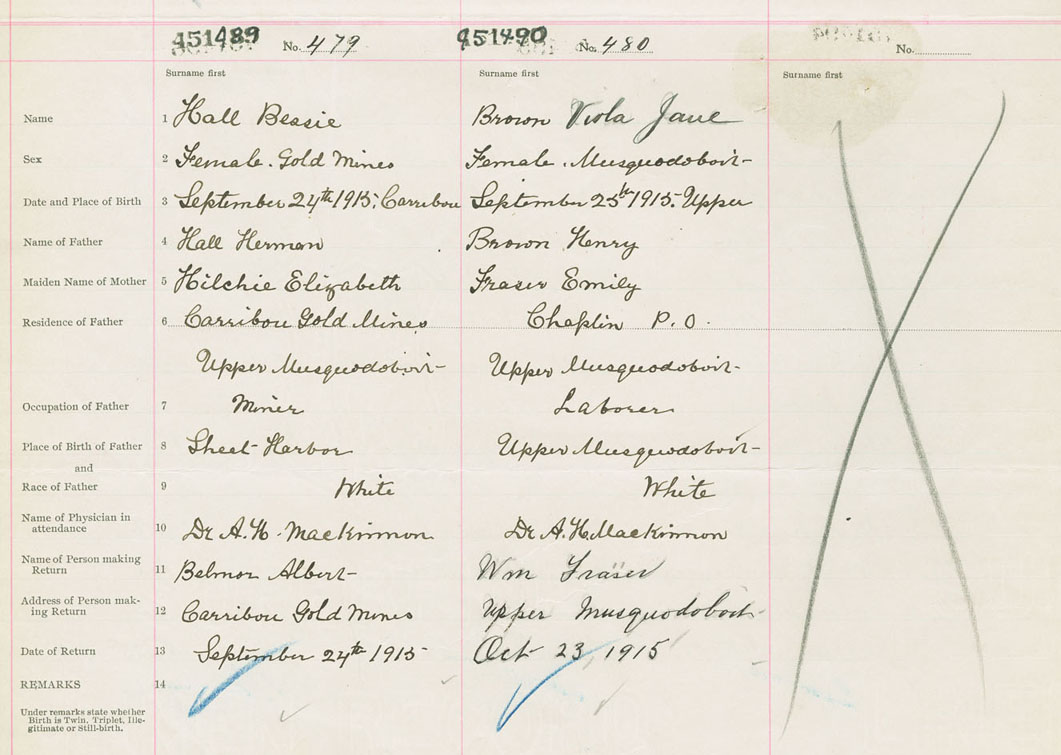 451489 No. 479 451490 No. 480 No.
Surname first Surname first Surname first
Name 1 Hall Bessie Brown Viola Jane
Sex 2 Female. Gold Mines Female. Musquodoboit
Date and Place of Birth 3 September 24th 1915; Carribou September 25th 1915. Upper
Name of Father 4 Hall Herman Brown Henry
Maiden Name of Mother 5 Hilchie Elizabeth Fraser Emily
Residence of Father 6 Carribou Gold Mines Chaplin P.O.
Upper Musquodoboit Upper Musquodoboit
Occupation of Father 7 Miner Laborer
Place of Birth of Father 8 Sheet Harbor Upper Musquodoboit
and
Race of Father 9 White White
Name of Physician in
attendance 10 Dr A.H. Mackinnon Dr A.H. Mackinnon
Name of Person making
Return 11 Belmor Albert Wm Fraser
Address of Person mak-
ing Return 12 Carribou Gold Mines Upper Musquodoboit
Date of Return 13 September 24th 1915 Oct 23, 1915
REMARKS 14
Under remarks state whether
Birth is Twin, Triplet, Ille-
gitimate or Still-birth.